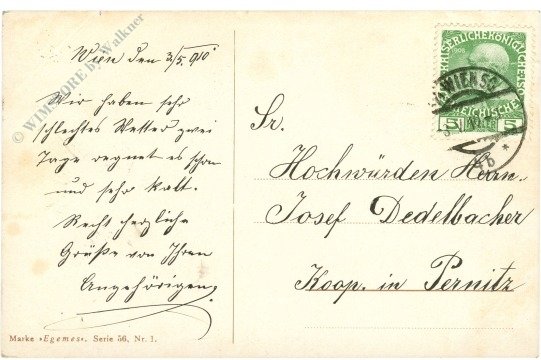 Wien den 3/5. 910
Wir haben sehr
schlechtes Wetter zwei
Tage regnet es schon
und sehr kalt.
Recht herzliche
Grüße von Ihren
Angehörigen
Marke »Egemes«. Serie 56, Nr. 1.
Sr.
Hochwürden Herrn
Josef Dedelbacher
Koop. in Pernitz
KAISERLICHE KÖNIGLICHE
1908
REICHISCHE
5 5
WIEN 50
© WIMSTORE by Walkner